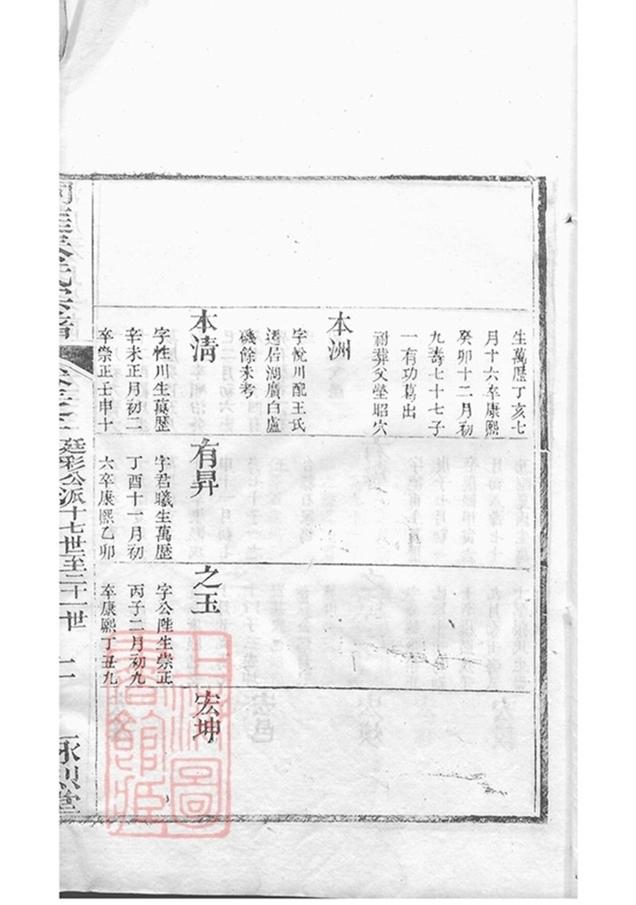 生萬歷丁亥七
月十六卒康熙
癸卯十二月初
九壽七十七子
一有功葛出
祔葬父塋昭穴
本洲
字悅川配王氏
遷居湖廣白盧
磯餘未考
本清
字性川生萬歷
辛未正月初二
卒崇正壬申十
有昇
字君曦生萬歷
丁酉十一月初
六卒康熙乙卯
之玉
字公陛生崇正
丙子二月初九
卒康熙丁丑九
宏坤
氏宗譜
廷彩公派十七世至二十一世
二
永思堂
上海圖
書館藏